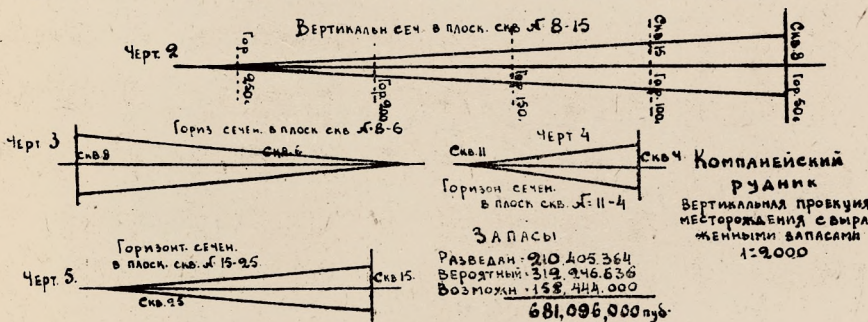 Вертикальн сеч. в плоск. скв № 8-15
Черт. 2
Гор. 250.
Гор. 200
Гор. 150.
Скв 15
Гор. 100.
Скв. 8
Гор. 50.
Черт 3
Гориз сечен. в плоск скв №.8-6
Скв 8
Скв. 6
Черт 4
Скв. 11
Скв 4.
Горизон сечен.
в плоск скв. №: 11-4
Компанейский
рудник
Вертикальная проекция
месторождения с выра-
женными запасами
1:2000
Черт. 5.
Горизонт. сечен.
в плоск. скв. № 15-25
Скв. 25
Скв 15.
Запасы
Разведан: 210.405.364
Вероятный: 312.246.636
Возможн: 158.444.000
681,096,000 пуд.